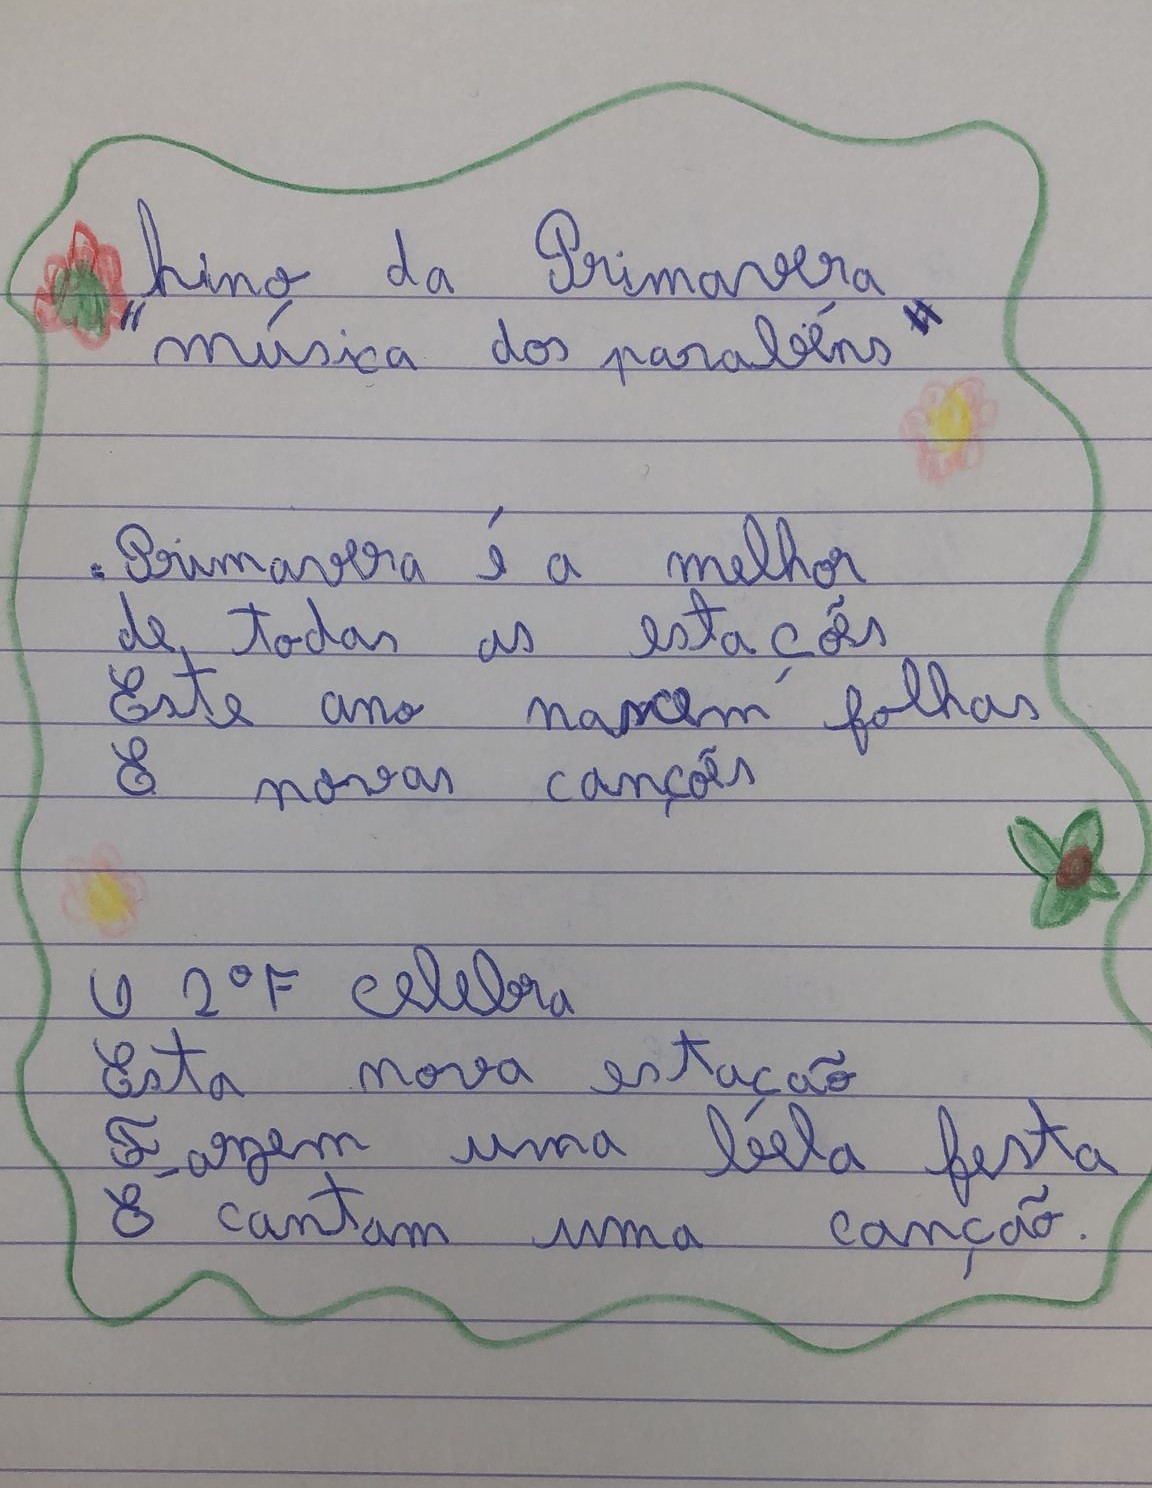 hino da Primavera
"música dos parabéns"
. Primavera é a melhor
de todas as estações
Este ano nascem folhas
E novas canções
O 2ºF celebra
Esta nova estação
Fazem uma béla festa
E cantam uma canção.